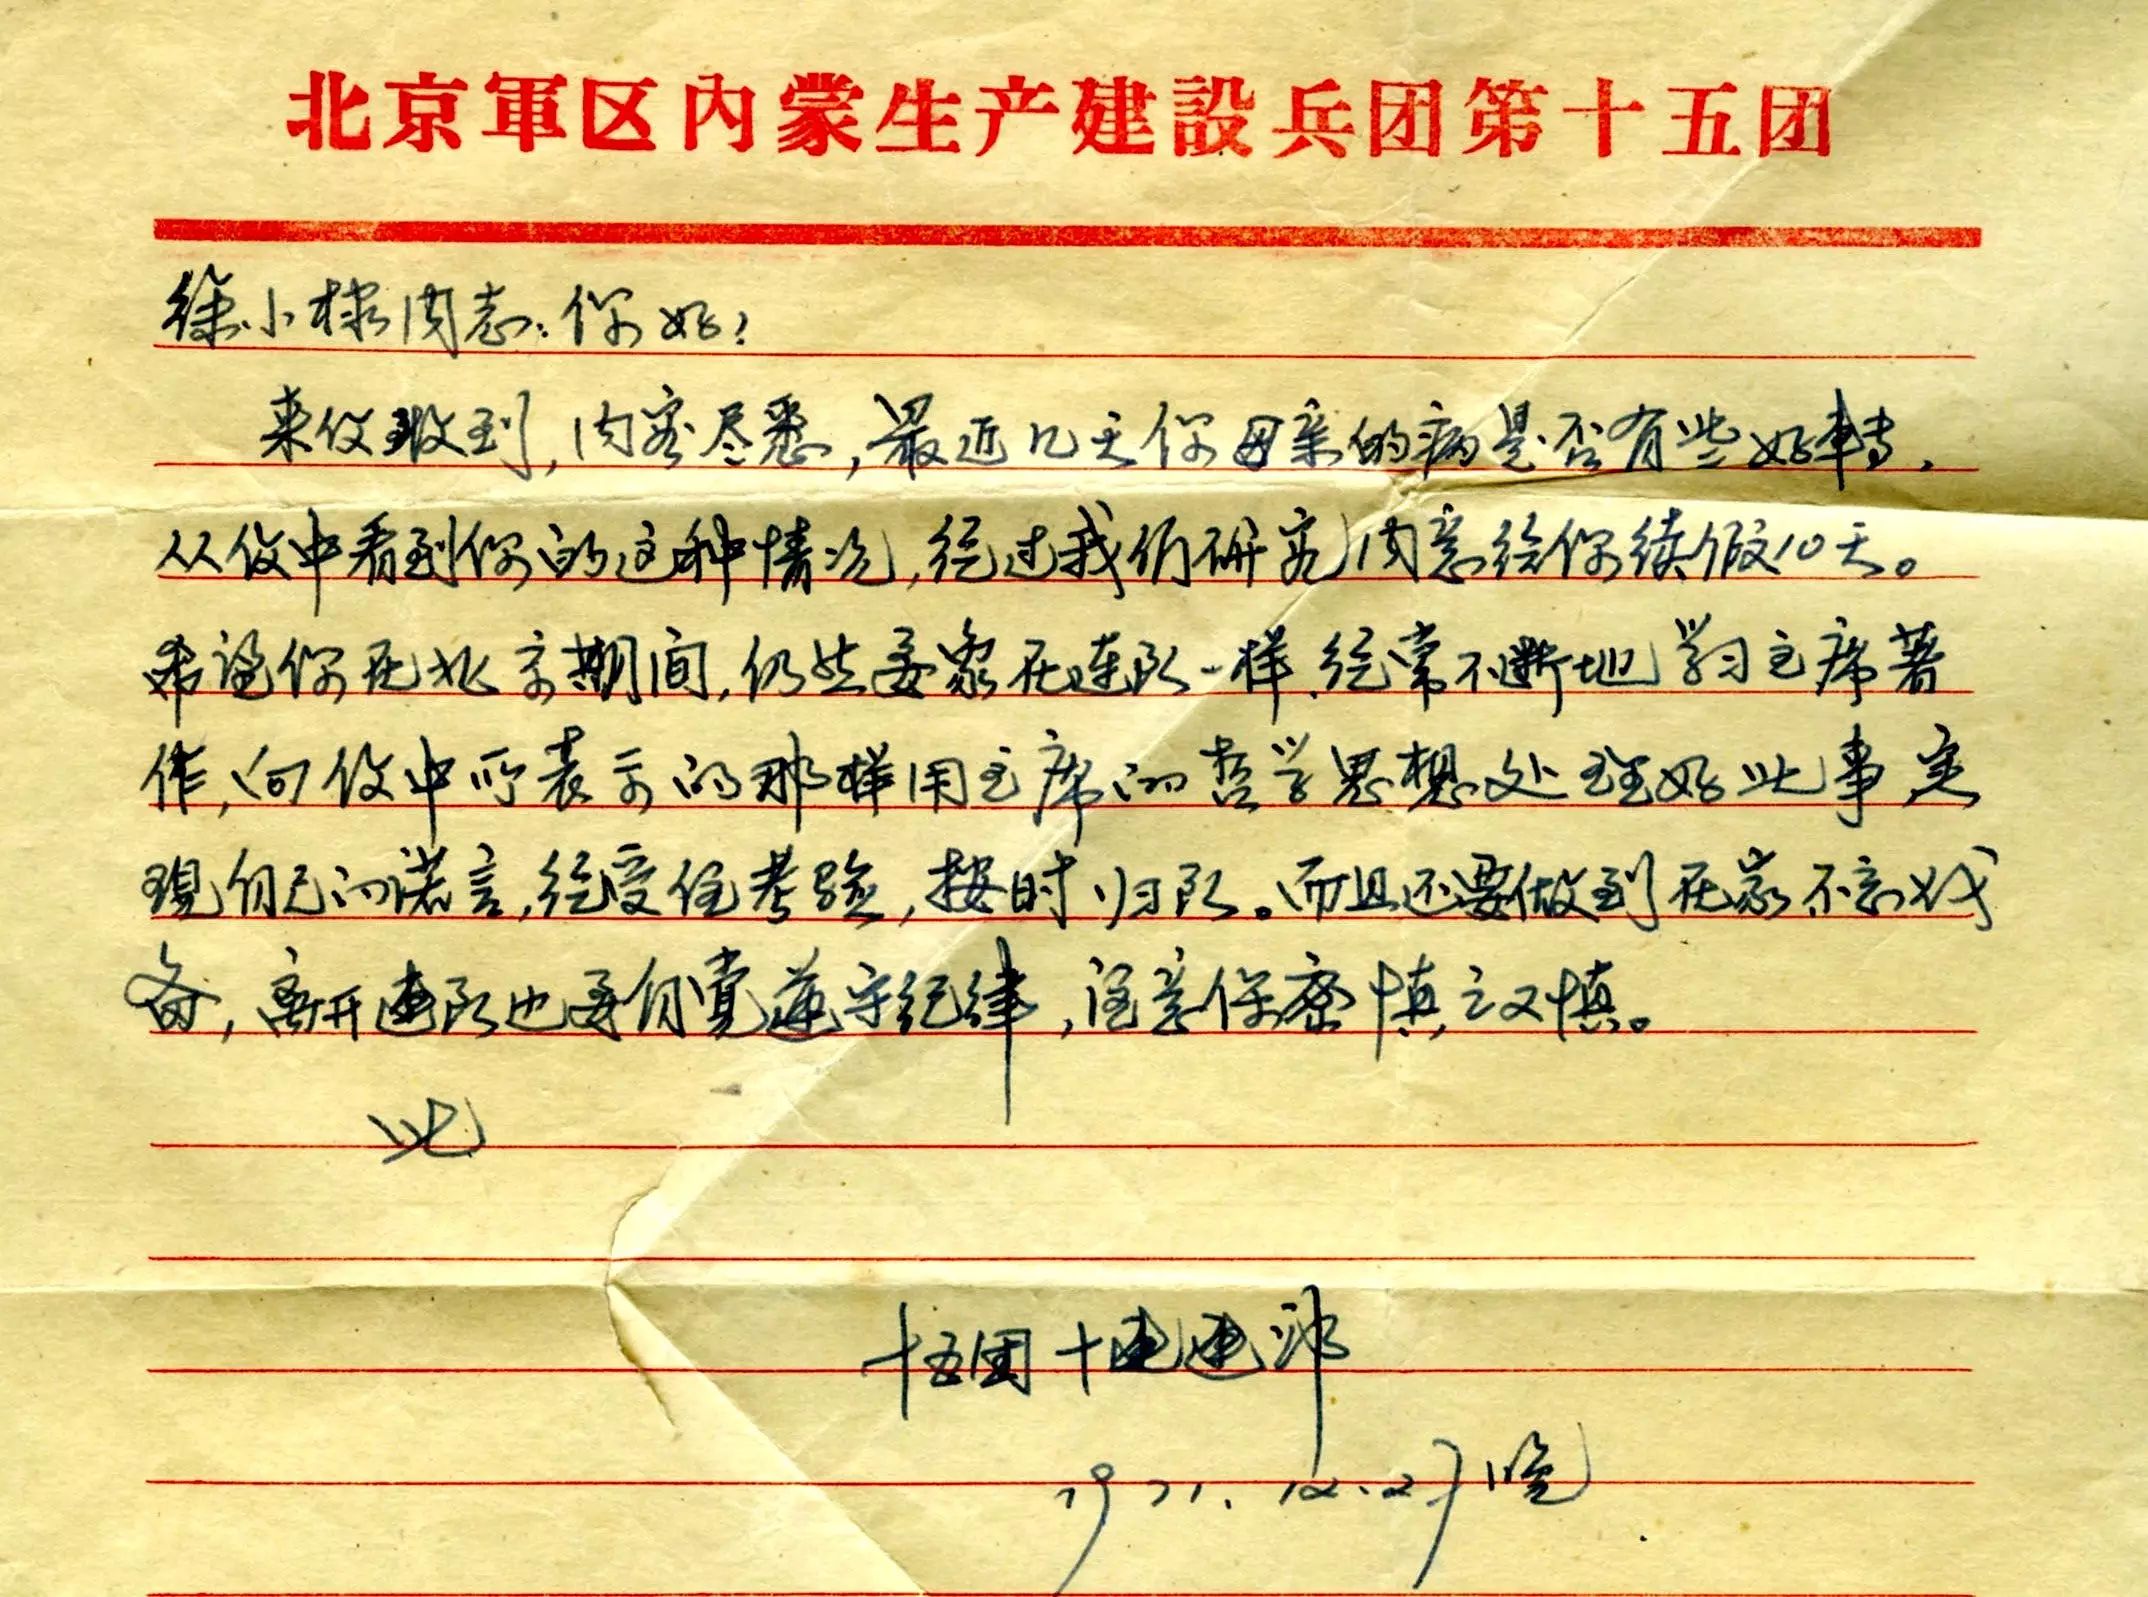 北京軍区內蒙生产建設兵团第十五团
徐小棣同志:你好!
来信收到,内容尽悉,最近几天你母亲的病是否有些好轉,
从信中看到你的这种情况,经过我们研究同意给你续假10天。
希望你在北京期间,仍然要象在连队一样,经常不断地学习主席著
作,向信中所表示的那样用主席的哲学思想处理好此事,实
現自己的诺言,经受住考验,按时归队。而且还要做到在家不忘战
备,离开連队也要自觉遵守纪律,注意保密慎之又慎。
此
十五团十連連部
1971.12.27晚